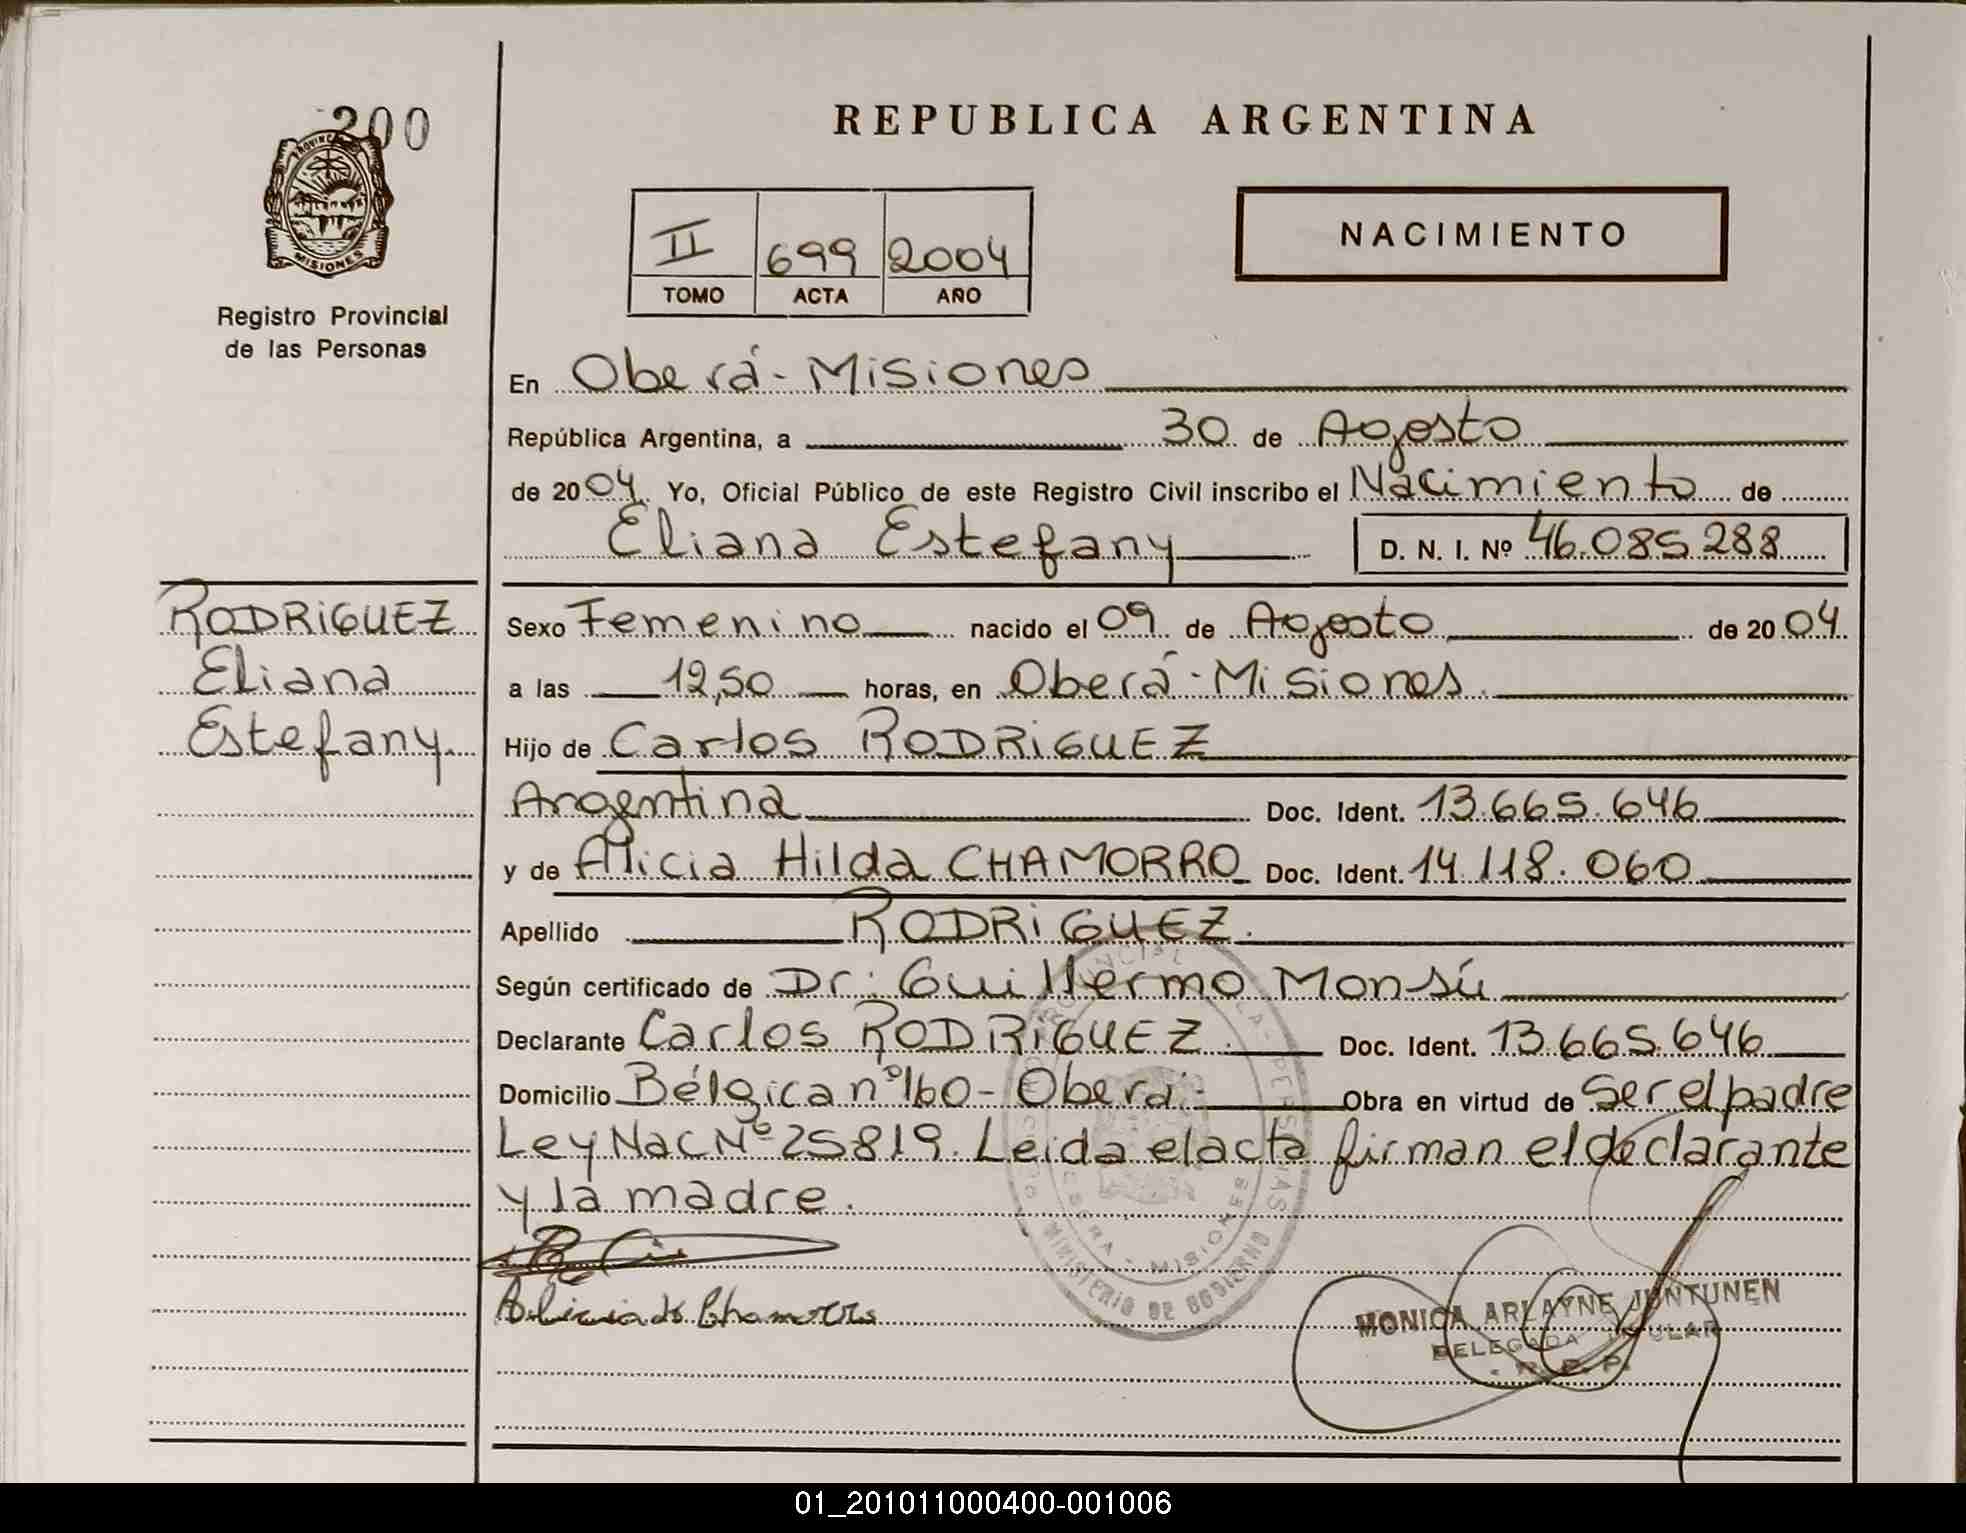 200
PROVINCIA
MISIONES
Registro Provincial
de las Personas
REPUBLICA ARGENTINA
II 699 2004
TOMO ACTA AÑO
NACIMIENTO
En Oberá - Misiones
República Argentina, a 30 de Agosto
de 2004. Yo, Oficial Público de este Registro Civil inscribo el Nacimiento de
Eliana Estefany D. N. I. Nº 46.085.288
RODRIGUEZ
Eliana
Estefany
Sexo Femenino nacido el 09 de Agosto de 2004.
a las 12,50 horas, en Oberá - Misiones.
Hijo de Carlos RODRIGUEZ
Argentina Doc. Ident. 13.665.646
y de Alicia Hilda CHAMORRO Doc. Ident. 14.118.060
Apellido RODRIGUEZ.
Según certificado de Dr. Guillermo Monsú
Declarante Carlos RODRIGUEZ. Doc. Ident. 13.665.646
Domicilio Bélgica nº 160 - Oberá - Obra en virtud de Ser el padre
Ley Nac Nº 25819. Leida el acta firman el declarante
y la madre.
Chamorro
MINISTERIO DE GOBIERNO
MISIONES
MONICA ARLAYNE JUNTUNEN
DELEGADA TITULAR
R. P. P.
01_201011000400-001006